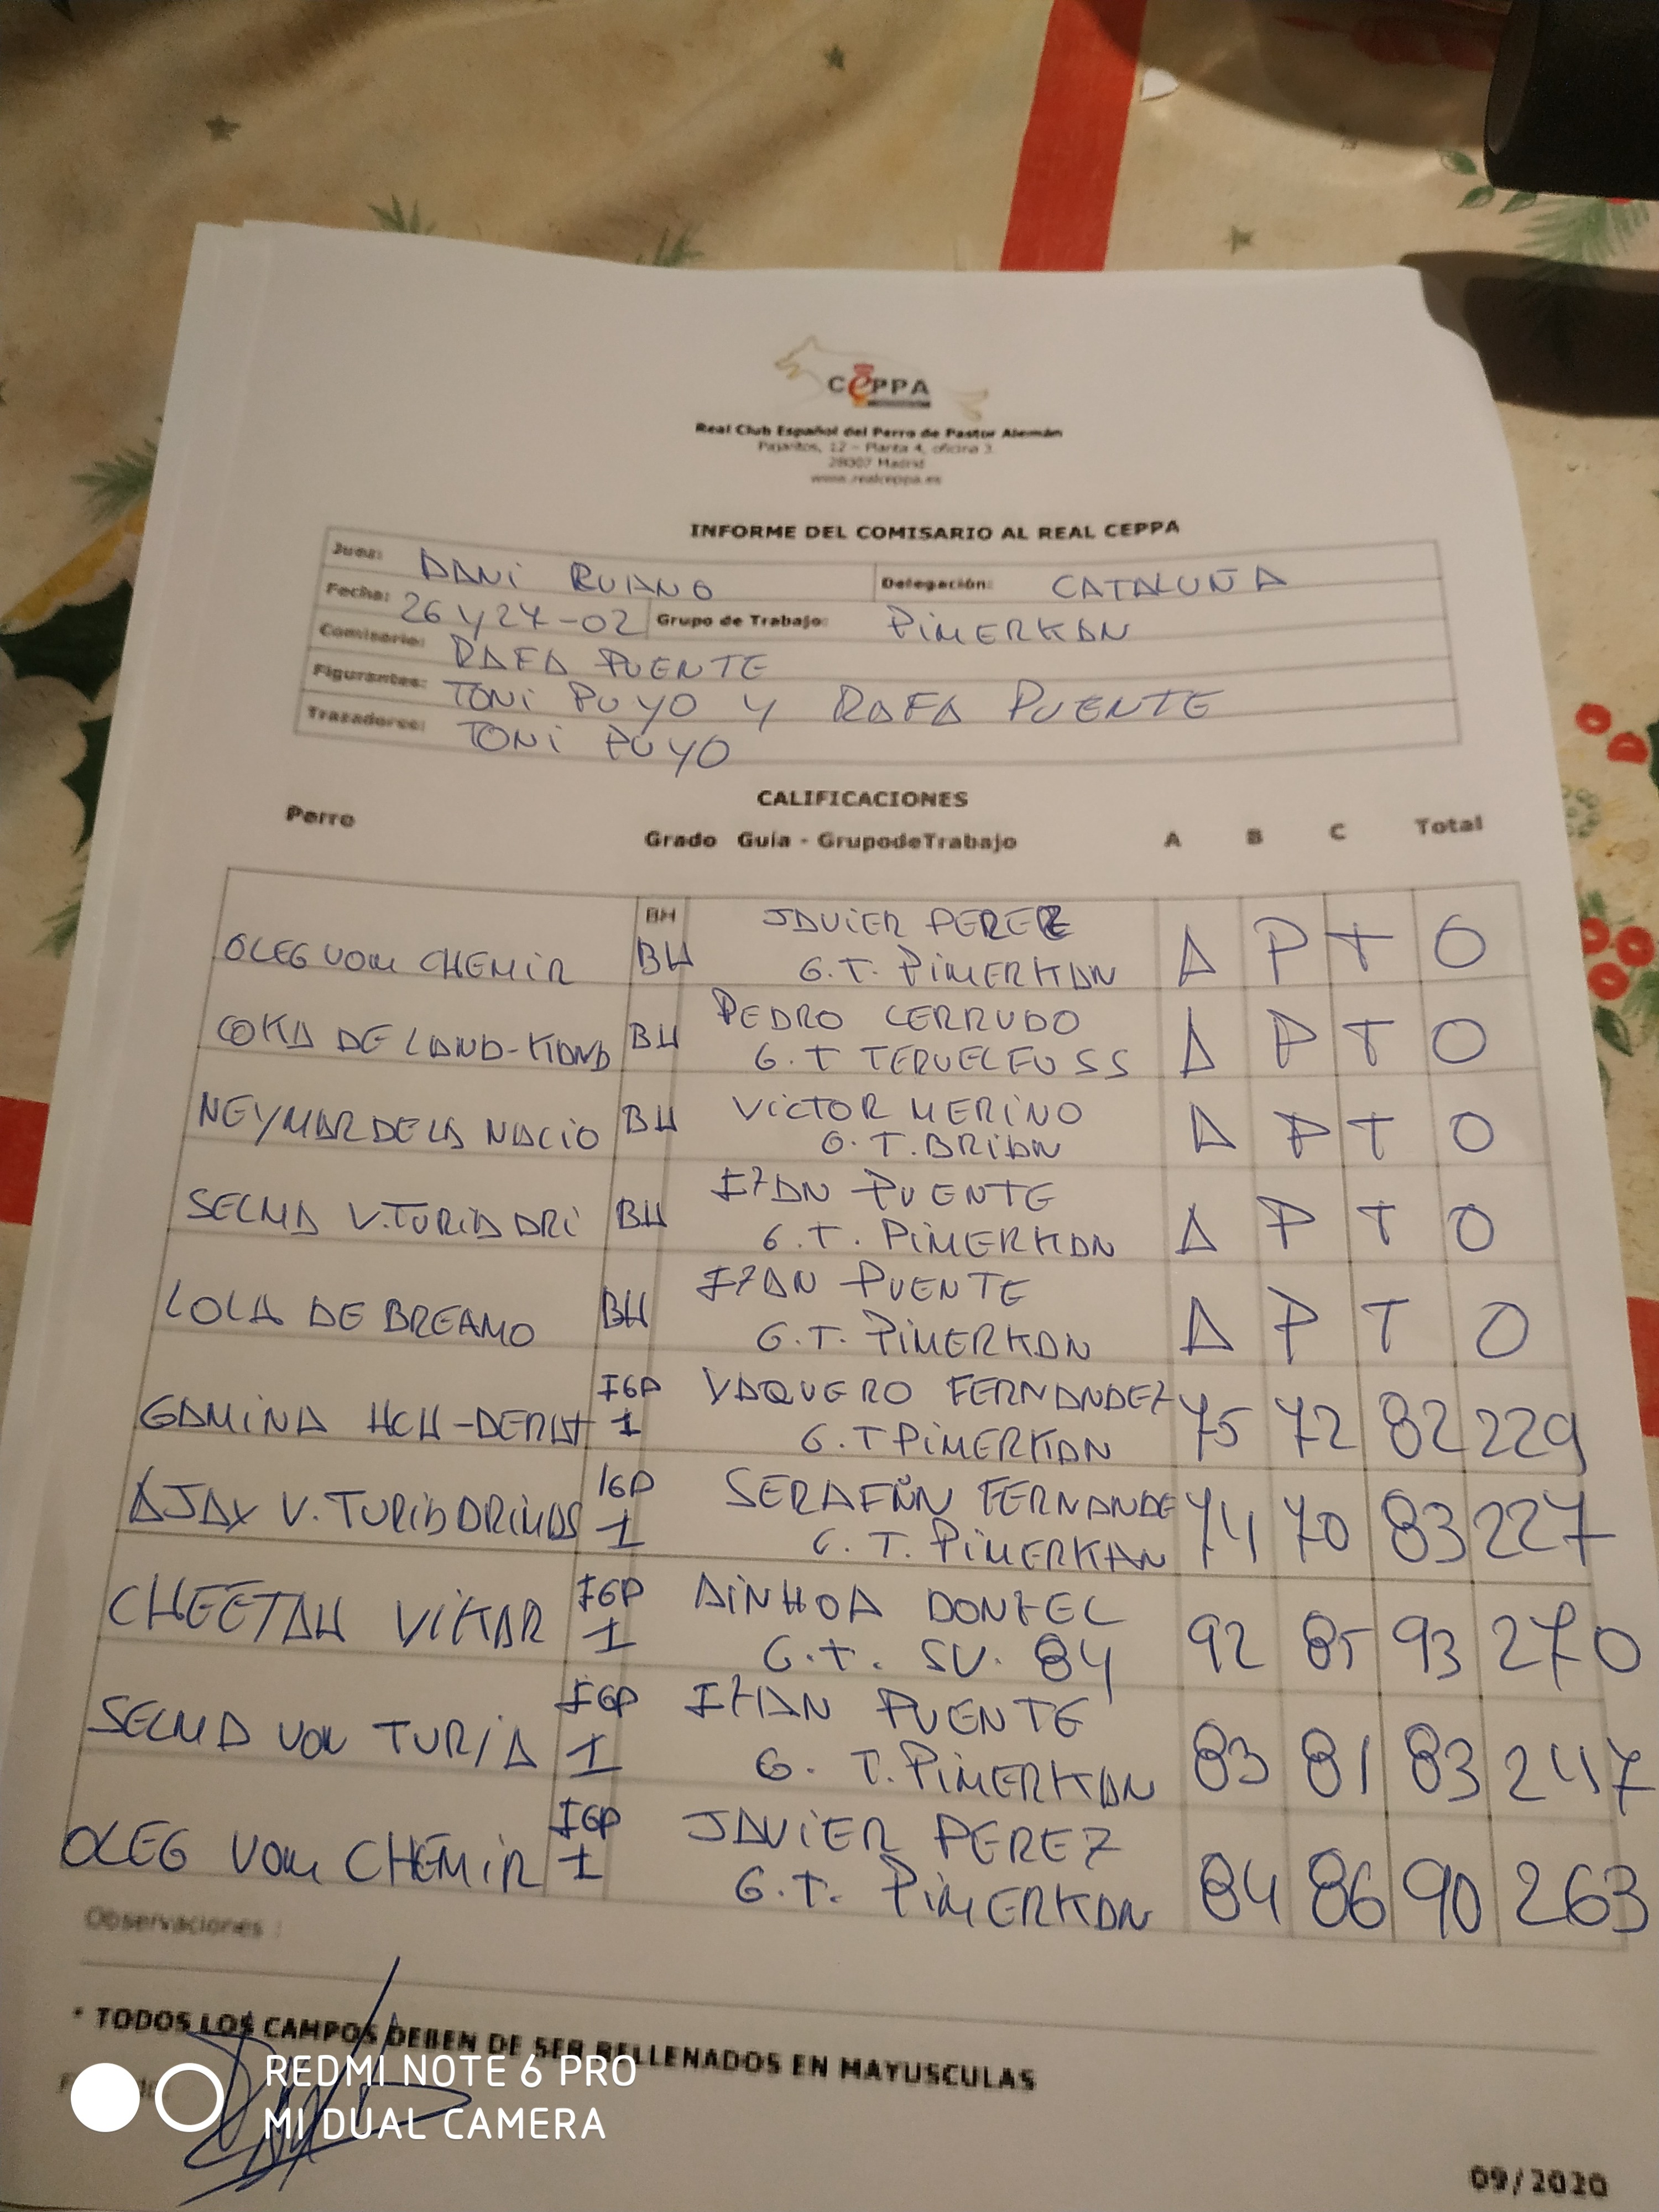 CEPPA
Real Club Español del Perro de Pastor Alemán
Pajaritos, 12 - Planta 4, oficina 3
28007 Madrid
www.realceppa.es
INFORME DEL COMISARIO AL REAL CEPPA
Juez: DANI RUANO Delegación: CATALUÑA
Fecha: 26 Y 27-02 Grupo de Trabajo: PIMERKAN
Comisario: RAFA PUENTE
Figurantes: TONI PUYO Y RAFA PUENTE
Trazadores: TONI PUYO
CALIFICACIONES
Perro Grado Guía - GrupodeTrabajo A B C Total
BH JAVIER PEREZ
OLEG VOM CHEMIR BH G.T. PIMERKAN A P T O
PEDRO CERRUDO
COKA DE LAND-KAND BH G.T TERUELFUSS A P T O
VICTOR MERINO
NEYMAR DE LA NACIO BH G.T. BRIAN A P T O
IZAN PUENTE
SELMA V. TURIA DRI BH G.T. PIMERKAN A P T O
IZAN PUENTE
LOLA DE BREAMO BH G.T. PIMERKAN A P T O
IGP VAQUERO FERNANDEZ
GAMINA HCH- 1 G.T PIMERKAN 75 72 82 229
IGP SERAFIN FERNANDE
AJAX V. TURIA DRIMAS 1 G.T. PIMERKAN 74 70 83 227
IGP AINHOA DONZEL
CHEETAH VIKAR 1 G.T. SV. 84 92 85 93 270
IGP IZAN PUENTE
SELMA VOM TURIA 1 G. T. PIMERKAN 83 81 83 247
IGP JAVIER PEREZ
OLEG VOM CHEMIR 1 G.T. PIMERKAN 84 86 90 263
Observaciones :
* TODOS LOS CAMPOS DEBEN DE SER RELLENADOS EN MAYUSCULAS
REDMI NOTE 6 PRO
MI DUAL CAMERA
09/2020